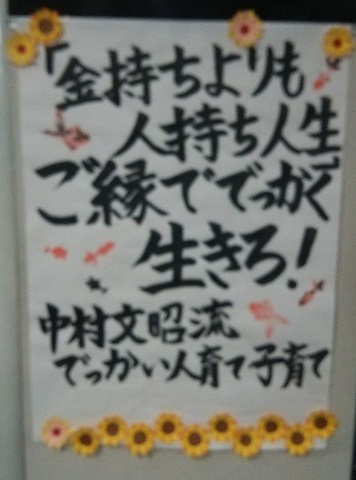 「金持ちよりも
人持ち人生」
ご縁ででっかく
生きろ！
中村文昭流
でっかい人育て子育て